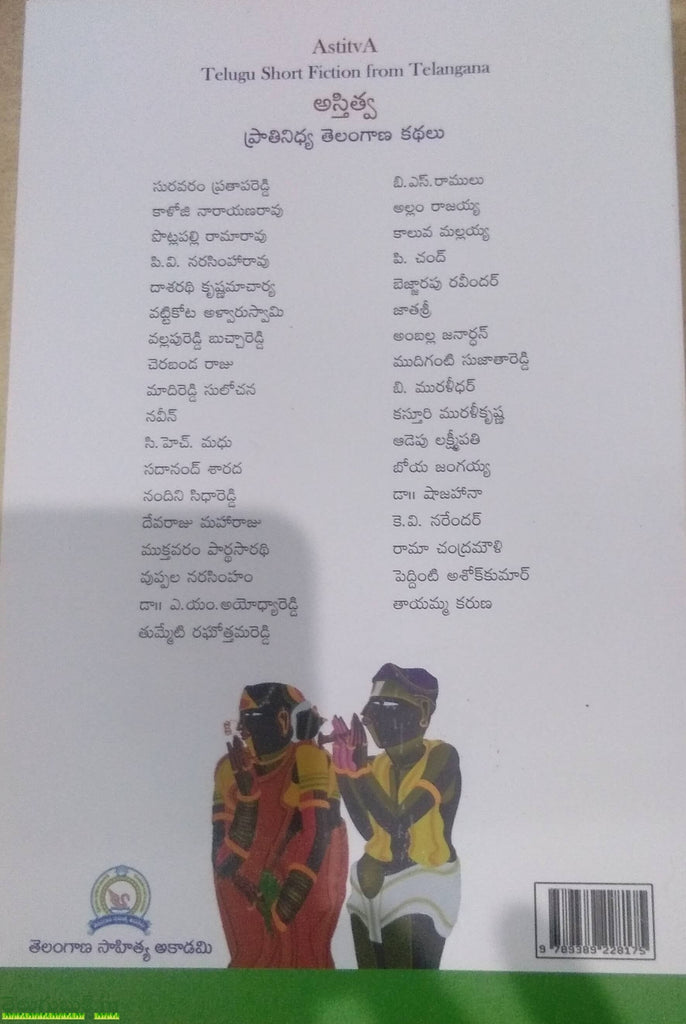 AstitvA
Telugu Short Fiction from Telangana
అస్తిత్వ
ప్రాతినిధ్య తెలంగాణ కథలు
సురవరం ప్రతాపరెడ్డి
కాళోజి నారాయణరావు
పొట్లపల్లి రామారావు
పి.వి. నరసింహారావు
దాశరథి కృష్ణమాచార్య
వట్టికోట అళ్వారుస్వామి
వల్లపురెడ్డి బుచ్చారెడ్డి
చెరబండ రాజు
మాదిరెడ్డి సులోచన
నవీన్
సి. హెచ్. మధు
సదానంద్ శారద
నందిని సిధారెడ్డి
దేవరాజు మహారాజు
ముక్తవరం పార్థసారథి
వుప్పల నరసింహం
డా॥ ఎ.యం.అయోధ్యారెడ్డి
తుమ్మేటి రఘోత్తమరెడ్డి
బి.ఎస్.రాములు
అల్లం రాజయ్య
కాలువ మల్లయ్య
పి. చంద్
బెజ్జారపు రవీందర్
జాతశ్రీ
అంబల్ల జనార్ధన్
ముదిగంటి సుజాతారెడ్డి
బి. మురళీధర్
కస్తూరి మురళీకృష్ణ
ఆడెపు లక్ష్మీపతి
బోయ జంగయ్య
డా॥ షాజహానా
కె.వి. నరేందర్
రామా చంద్రమౌళి
పెద్దింటి అశోక్‌కుమార్
తాయమ్మ కరుణ
తెలంగాణ సాహిత్య అకాడమి
9 789389 228175